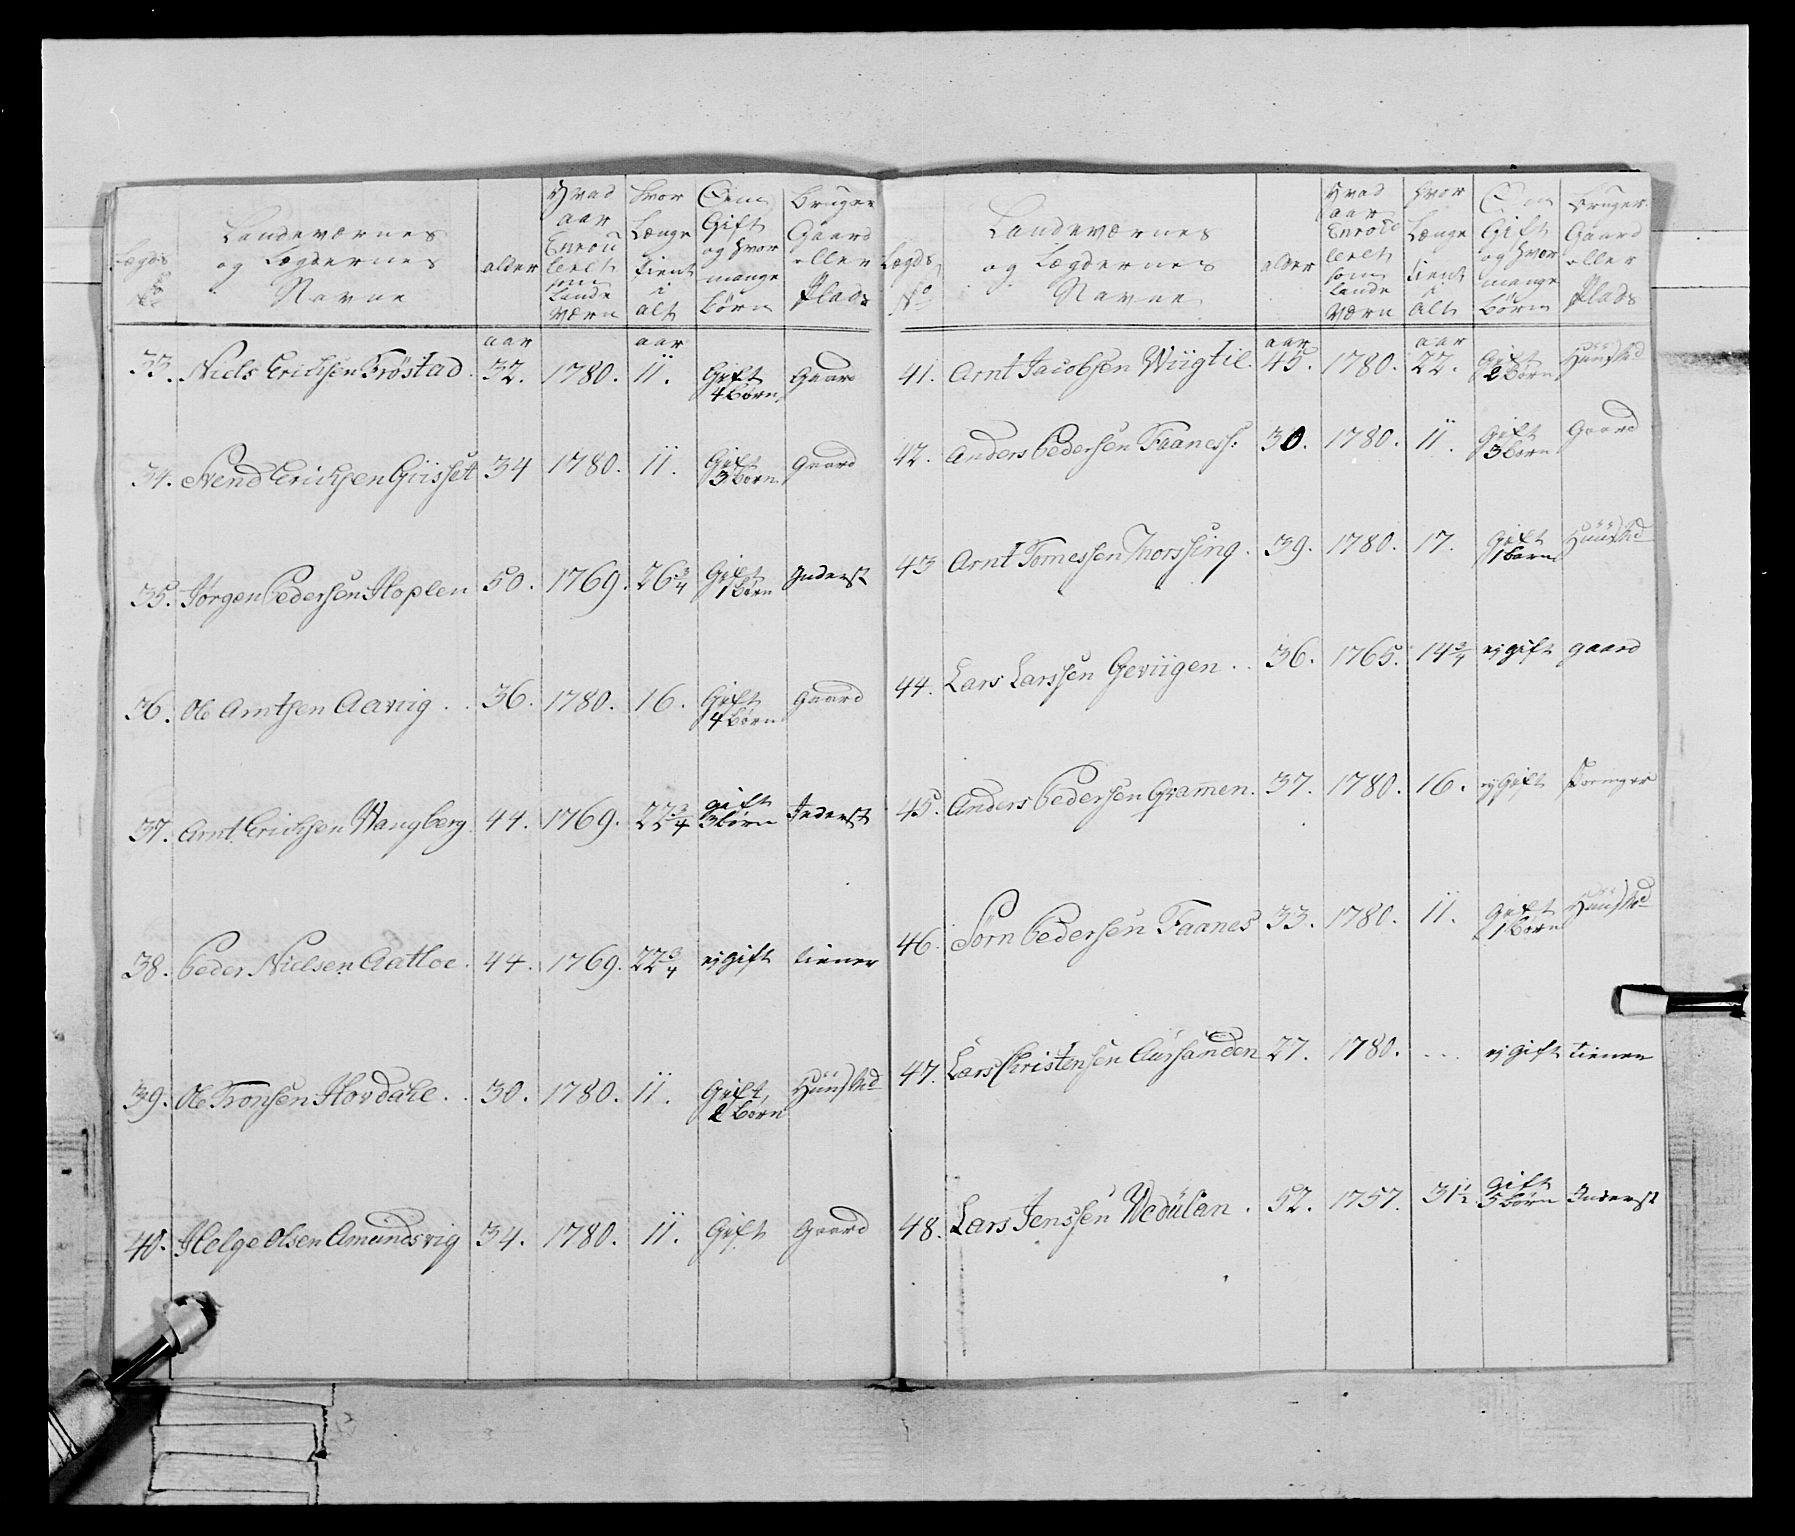 Lægds No | Landeværnes og Lægdernes Navne | alder | Hvad aar Enroulleret som Lande Værn | hvor Længe tient i alt | Om Gift og hvor mange børn | bruger Gaard eller Plads
aar | aar
33. Niels Erichsen Fröstad. 32. 1780. 11. Gift 4 børn Gaard
34. Svend Erichsen Giisset 34 1780. 11. Gift 3 børn Gaard
35. Jörgen Pedersen Hoplen 50. 1769. 26 3/4 Gift 1 børn Inderst
36. Ole Arntsen Aavig . . 36. 1780. 16. Gift 4 børn Gaard
37. Arnt Erichsen Wangberg 44. 1769. 22 3/4 gift 3 børn Inderst
38. Peder Nielsen Aatloe. 44. 1769. 22 3/4 ej gift tiener
39. Ole Tronsen Hovdahl . . 30. 1780. 11. Gift 2 børn Huusmd
40. Helge Olsen Amundsvig 34. 1780. 11. Gift Gaard
Lægds No | Landeværnes og Lægdernes Navne | alder | Hvad aar Enroulleret som Lande Værn | hvor Længe tient i alt | Om Gift og hvor mange børn | bruger Gaard eller Plads
aar | aar
41. Arnt Jacobsen Wiigtil. 45. 1780. 22. Gift 2 børn Huusmd
42. Anders Pedersen Faaness: 30. 1780. 11. Gift 3 børn Gaard
43 Arnt Tomessen Thorssing. 39. 1780. 17. Gift 1 børn Huusmd
44. Lars Larssen Geviigen . . 36. 1765. 14 3/4 ej gift gaard
45. Anders Pedersen Gramen. 37. 1780. 16. ej Gift
46. Sörn Pedersen Faanes 33. 1780. 11. Gift 1 børn Huusmd
47. Lars Christensen Aursanden 27. 1780. ... ej gift tiener
48. Lars Jenssen Wedulan . 52. 1757. 31 1/2 gift 5 børn Inderst